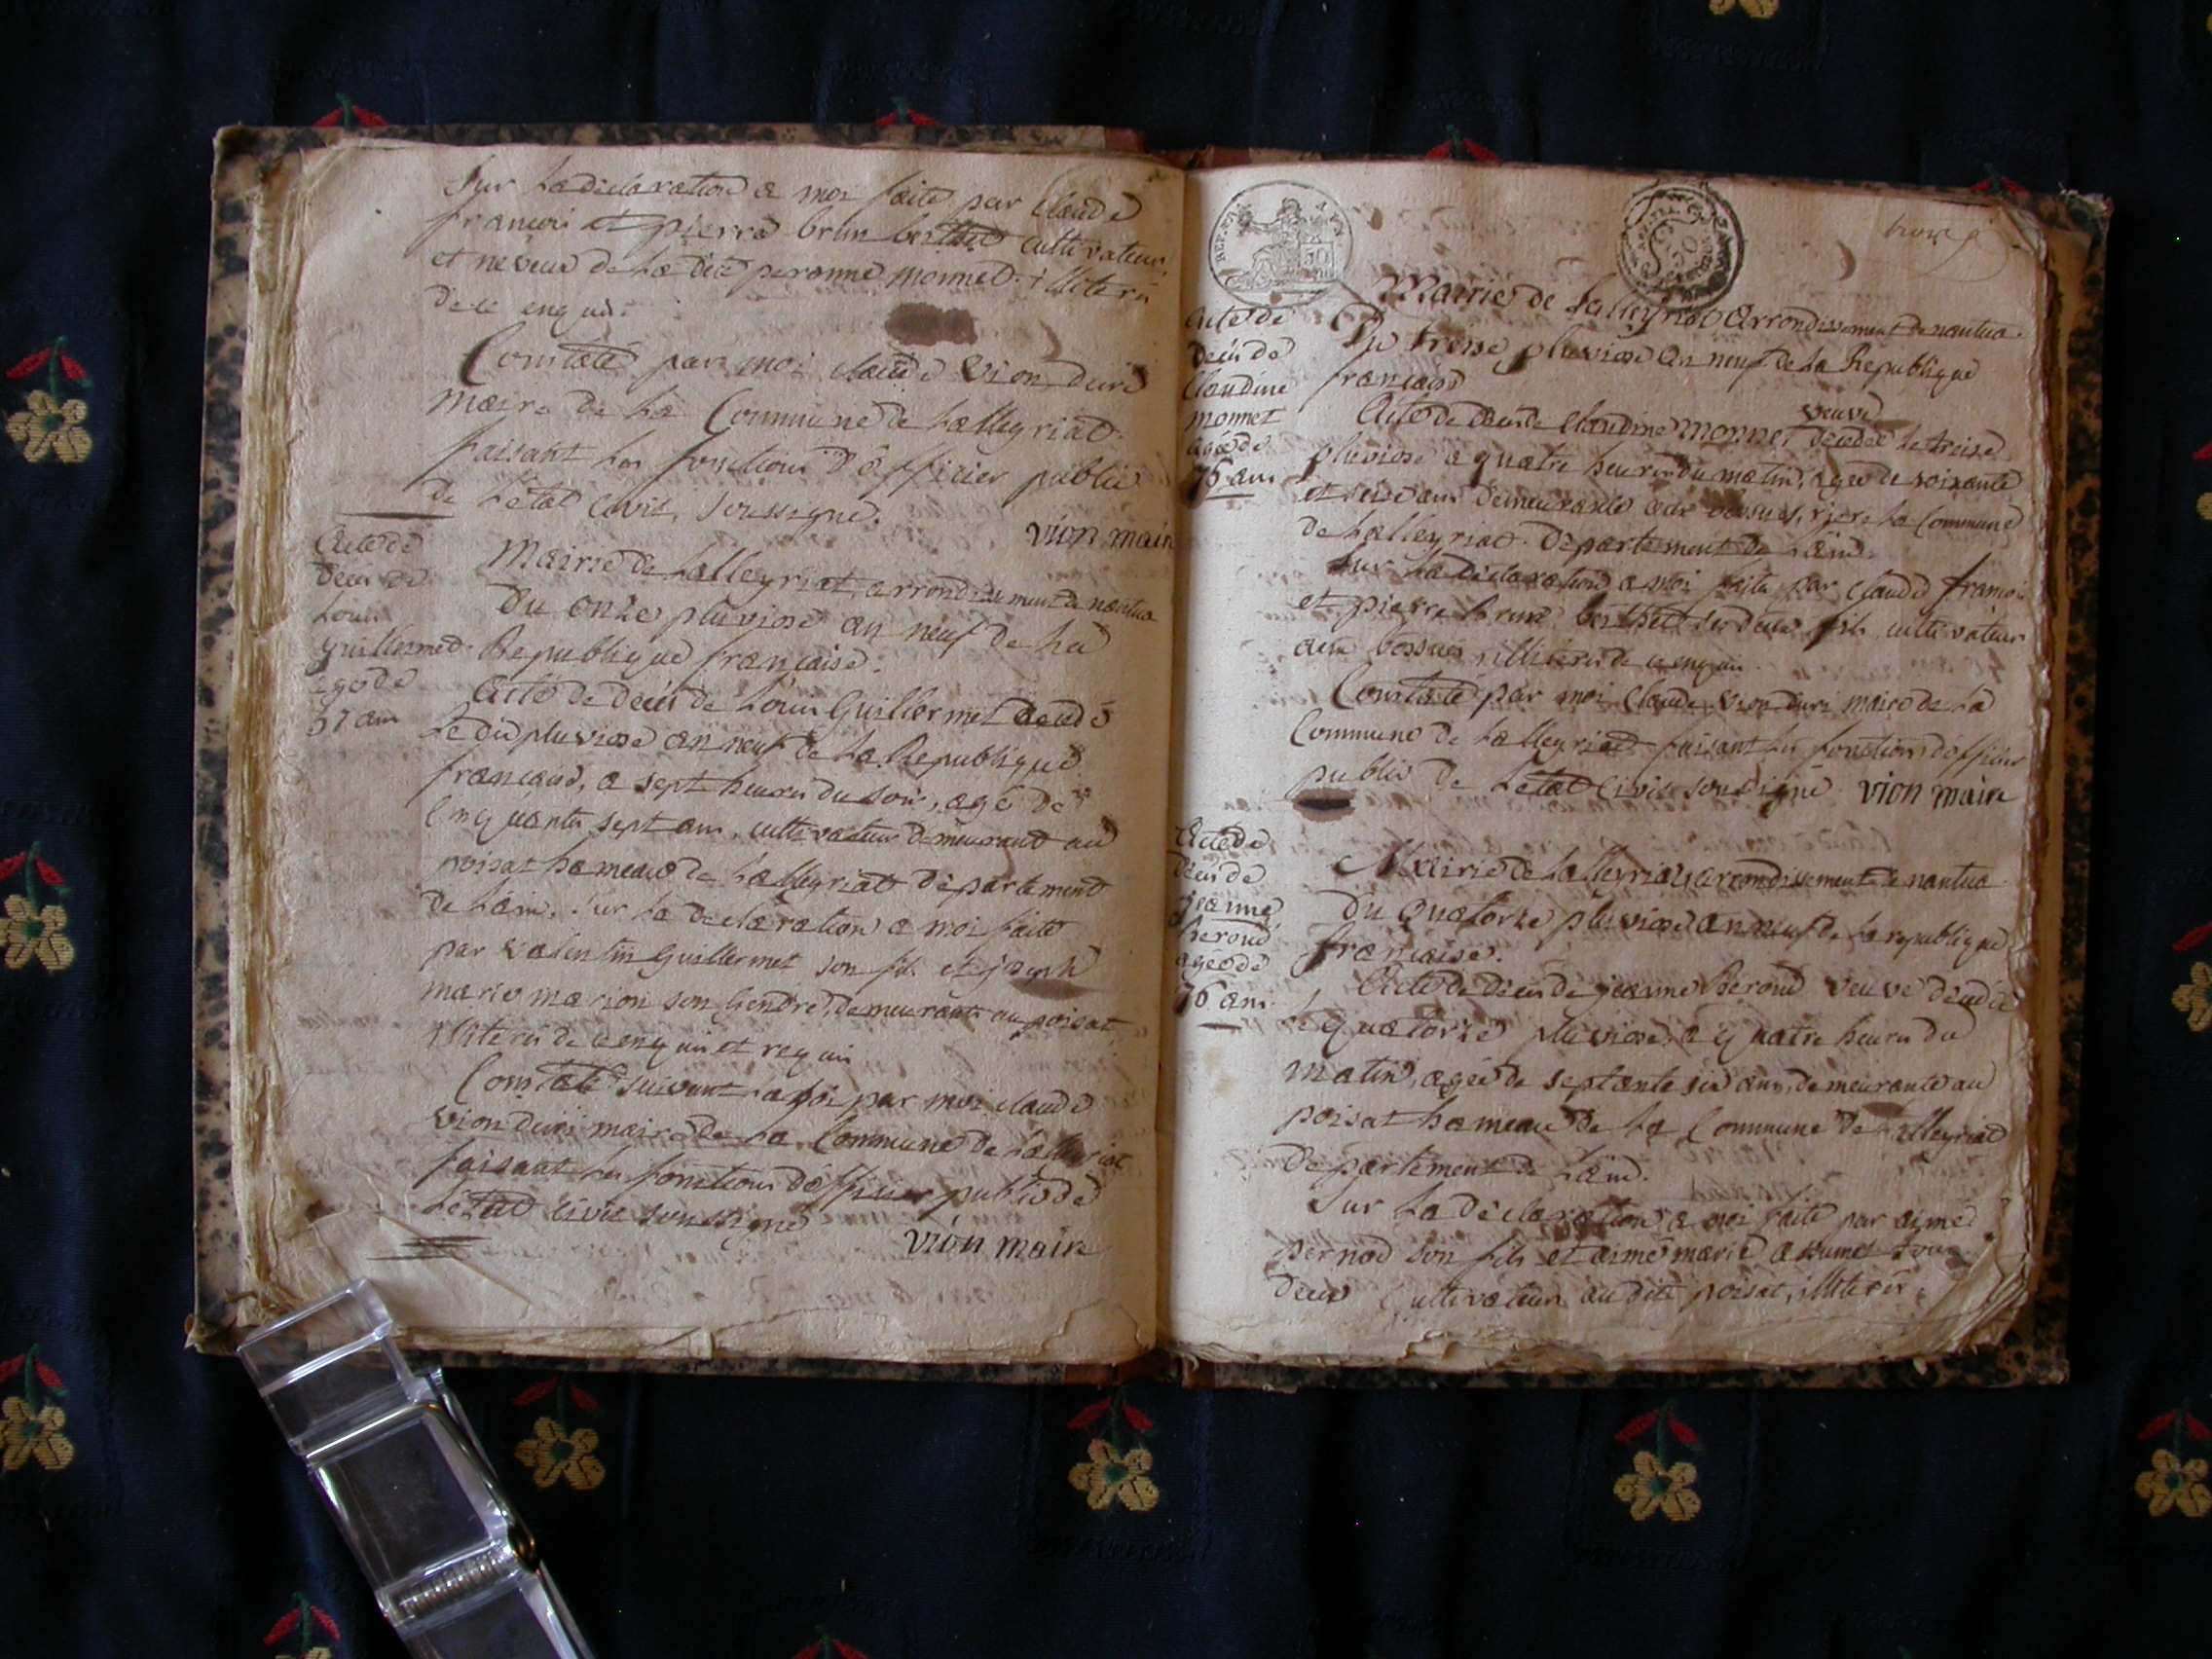 Sur La déclaration a moi faite par Claude
françois et pierre brun berthet cultivateur,
et neveux de La dite peronne monnet. illiterés
de ce enquis.
Constaté par moi claude Vion duri
maire de La Commune de Lalleyriat
faisant Les fonctions d'officier public
de L'état Civil, soussigné.
vion maire
Acte de
décés de
Louis
guillermet
agé de
57 ans
Mairie de Lalleyriat, arrondissement de nantua
Du onze pluviose an neuf de La
Republique française.
Acte de décés de Louis Guillermet décédé
Le dix pluviose an neuf de La Republique
française, a sept heures du soir, agé de
Cinquante sept ans, cultivateur demeurant au
poisat hameau de Lalleyriat département
de Lain. Sur La déclaration a moi faite
par valentin Guillermet son fils et joseph
marie marion son Gendre, demeurants au poisat
illiterés de ce enquis et requis
Constaté suivant la loi par moi claude
vion duri maire de La Commune de Lalleyriat
faisant les fonctions d'officier public de
Létat civil soussigné
vion maire
Mairie de Lalleyriat Arrondissement de nantua.
Du treise pluviose an neuf de La Republique
française
Acte de
décés de
Claudine
monnet
agée de
76 ans
veuve
Acte de décés de Claudine monnet décédée le treise
pluviose a quatre heures du matin, agée de soixante
et seise ans demeurante aux bossues, riere La Commune
de Lalleyriat. département de Lain.
Sur La déclaration a moi faite par Claude françois
et pierre brun berthet ses deux fils cultivateur
aux bossues illiterés de ce enquis.
Constaté par moi Claude vion duri maire de La
Commune de Lalleyriat faisant les fonctions d'officier
public de Létat Civil soussigné vion maire
Acte de
décés de
jeanne
beroud
agée de
76 ans.
Mairie de Lalleyriat, arrondissement de nantua.
Du quatorze pluviose an neuf de La republique
française.
Acte de décés de jeanne Beroud veuve décédée
le quatorze pluviose, a quatre heures du
matin, agée de septante six ans, demeurante au
poisat hameau de La Commune de Lalleyriat
département de Lain.
Sur La déclaration a moi faite par aimé
pernod son fils et aimé marie tous
deux Cultivateurs audit poisat, illiterés